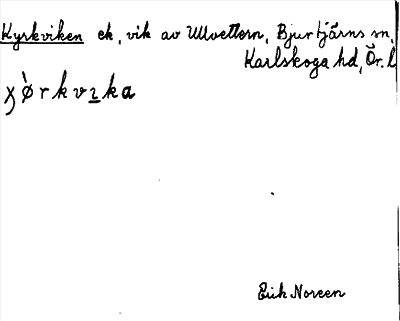 Kyrkviken ek, vik av Ullvettern, Bjurtjärns sn,
Karlskoga hd, Ör. l
Erik Noreen